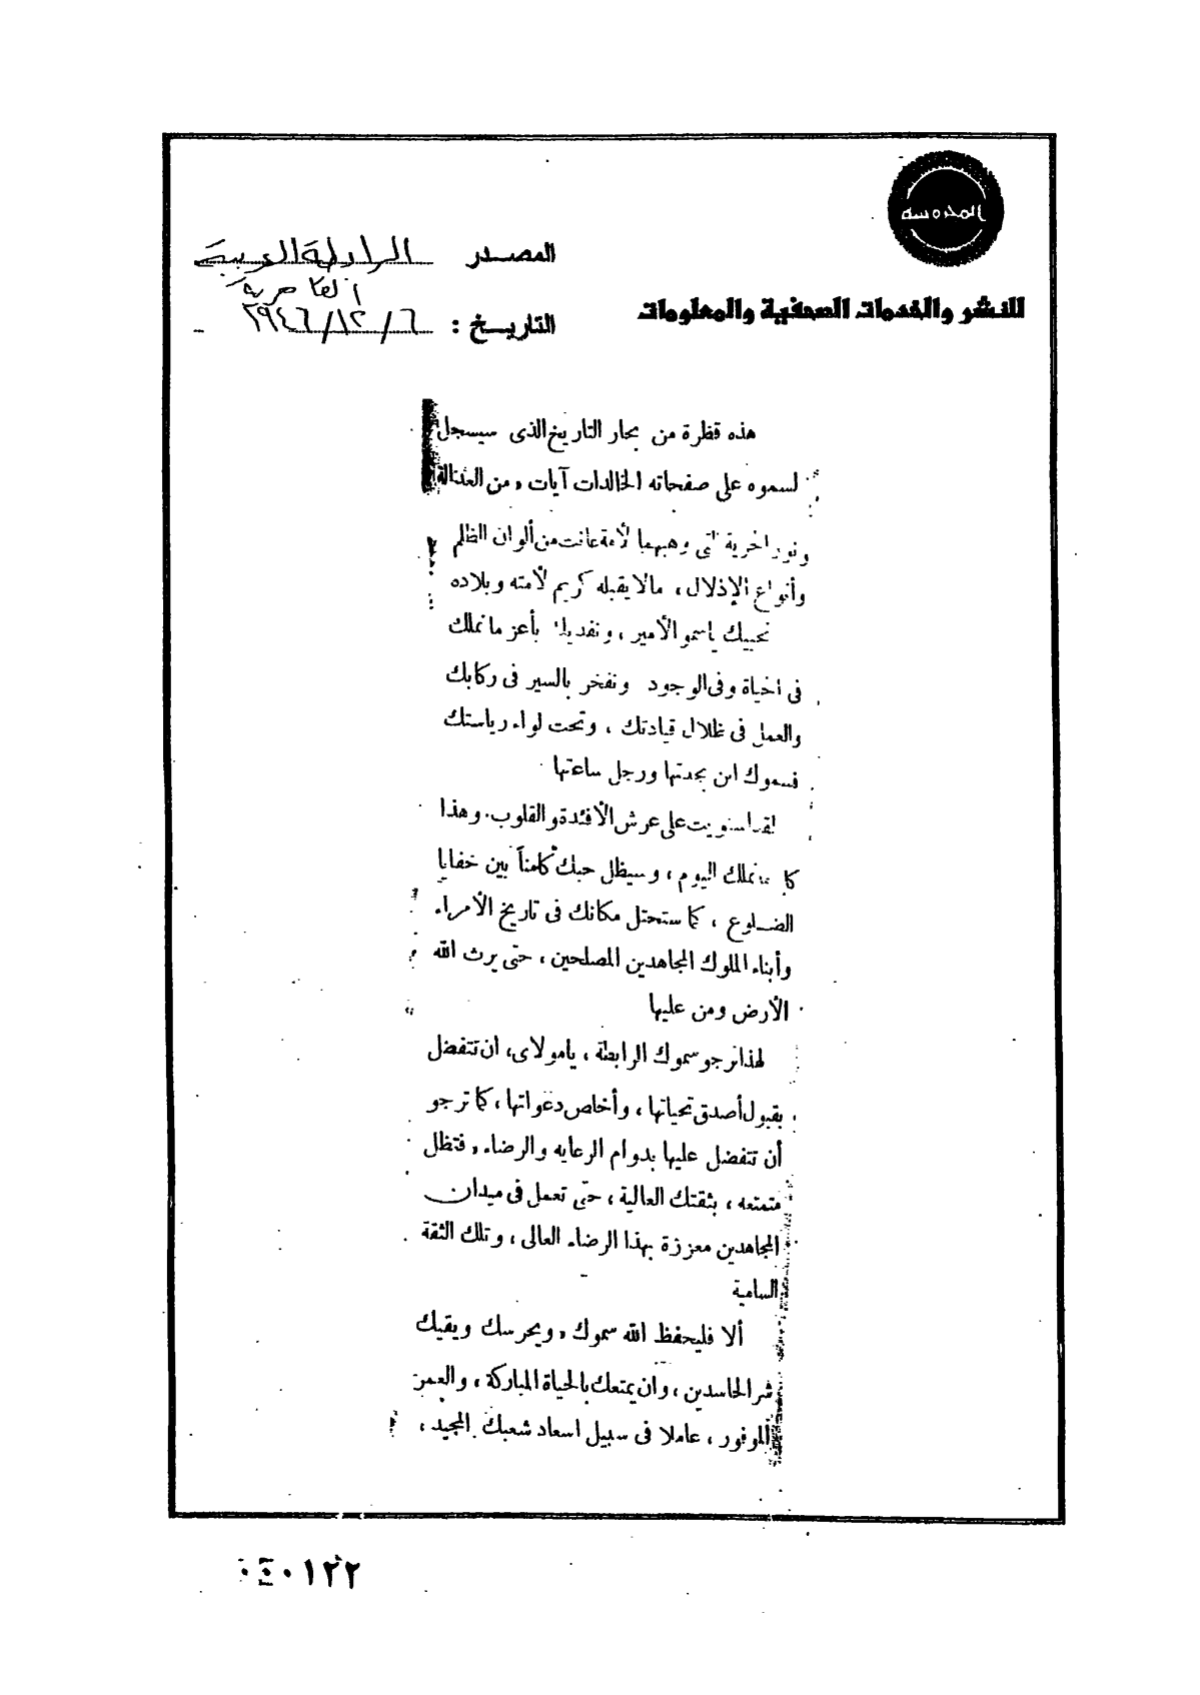 المحروسة
للنشر والخدمات الصحفية والمعلومات
المصدر الرابطة العربية
القاهرية
التاريخ : ٦ / ١٢ / ١٩٤٦
هذه قطرة من بحار التاريخ الذى سيسجل
لسموه على صفحاته الخالدات آيات ، من العدالة
ونور الحرية التى وهبهما لأمة عانت من ألوان الظلم
وأنواع الإذلال ، مالا يقبله كريم لأمته وبلاده
نحييك ياسمو الأمير ، ونفديك بأعز ما نملك
فى الحياة وفى الوجود ونفخر بالسير فى ركابك
والعمل فى ظلال قيادتك ، وتحت لواء رياستك
فسموك ابن بجدتها ورجل ساعتها
لقد استويت على عرش الأفئدة والقلوب. وهذا
كل ما نملك اليوم ، وسيظل حبك كامناً بين خفايا
الضلوع ، كما ستحتل مكانك فى تاريخ الأمراء
وأبناء الملوك المجاهدين المصلحين ، حتى يرث الله
الأرض ومن عليها
لهذا نرجو سموك الرابطة ، يامولاى، ان تتفضل
بقبول أصدق تحياتها ، وأخلص دعواتها ، كما ترجو
أن تتفضل عليها بدوام الرعايه والرضاء ، فتظل
متمتعه ، بثقتك العالية ، حتى تعمل فى ميدان
المجاهدين معززة بهذا الرضاء العالى ، وتلك الثقة
السامية
ألا فليحفظ الله سموك ، ويحرسك ويقيك
شر الحاسدين ، وان يمتعك بالحياة المباركة ، والعمر
الموفور ، عاملا فى سبيل اسعاد شعبك المجيد ،
٠٤٠١٢٢